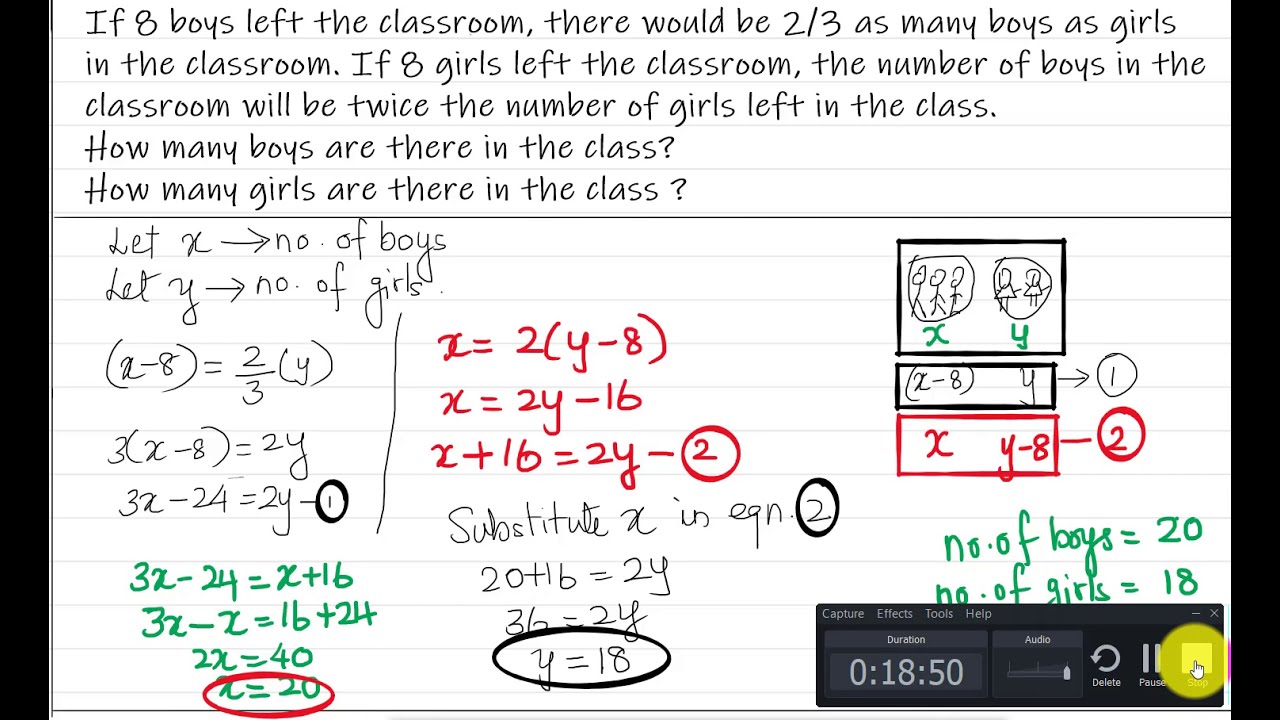 If 8 boys left the classroom, there would be 2/3 as many boys as girls
in the classroom. If 8 girls left the classroom, the number of boys in the
classroom will be twice the number of girls left in the class.
How many boys are there in the class?
How many girls are there in the class ?
Let x → no. of boys
Let y → no. of girls.
(x-8) = 2/3 (y)
3(x-8) = 2y
3x-24 = 2y - 1
3x-24 = x+16
3x-x = 16+24
2x = 40
x = 20
x = 2(y-8)
x = 2y-16
x+16 = 2y - 2
Substitute x in eqn. 2
20+16 = 2y
36 = 2y
y = 18
x y
(x-8) y → 1
x y-8 - 2
no. of boys = 20
no. of girls = 18
Capture Effects Tools Help
Duration
0:18:50
Audio
Delete
Pause
Stop